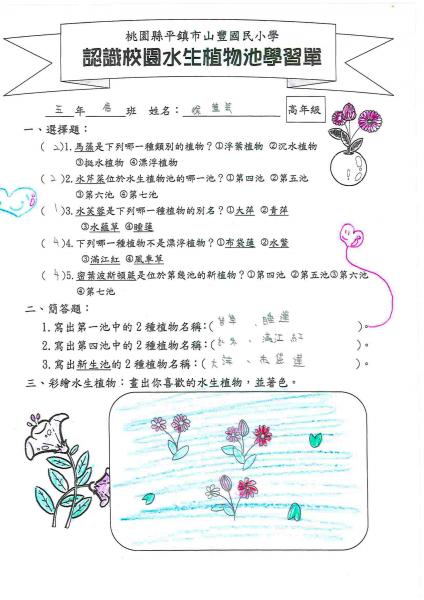 桃園縣平鎮市山豐國民小學
認識校園水生植物池學習單
五 年 班 姓名： 高年級
一、選擇題：
( 2 )1.馬藻是下列哪一種類別的植物？①浮葉植物 ②沉水植物
③挺水植物 ④漂浮植物
( 2 )2.水芹菜位於水生植物池的哪一池？①第四池 ②第五池
③第六池 ④第七池
( 1 )3.水芙蓉是下列哪一種植物的別名？①大萍 ②青萍
③水蘊草 ④睡蓮
( 4 )4.下列哪一種植物不是漂浮植物？①布袋蓮 ②水鱉
③滿江紅 ④風車草
( 4 )5.密葉波斯頓蕨是位於第幾池的新植物？①第四池 ②第五池③第六池
④第七池
二、簡答題：
1.寫出第一池中的2種植物名稱：( 、睡蓮 )。
2.寫出第四池中的2種植物名稱：( 、滿江紅 )。
3.寫出新生池的2種植物名稱：(大萍、布袋蓮 )。
三、彩繪水生植物：畫出你喜歡的水生植物，並著色。